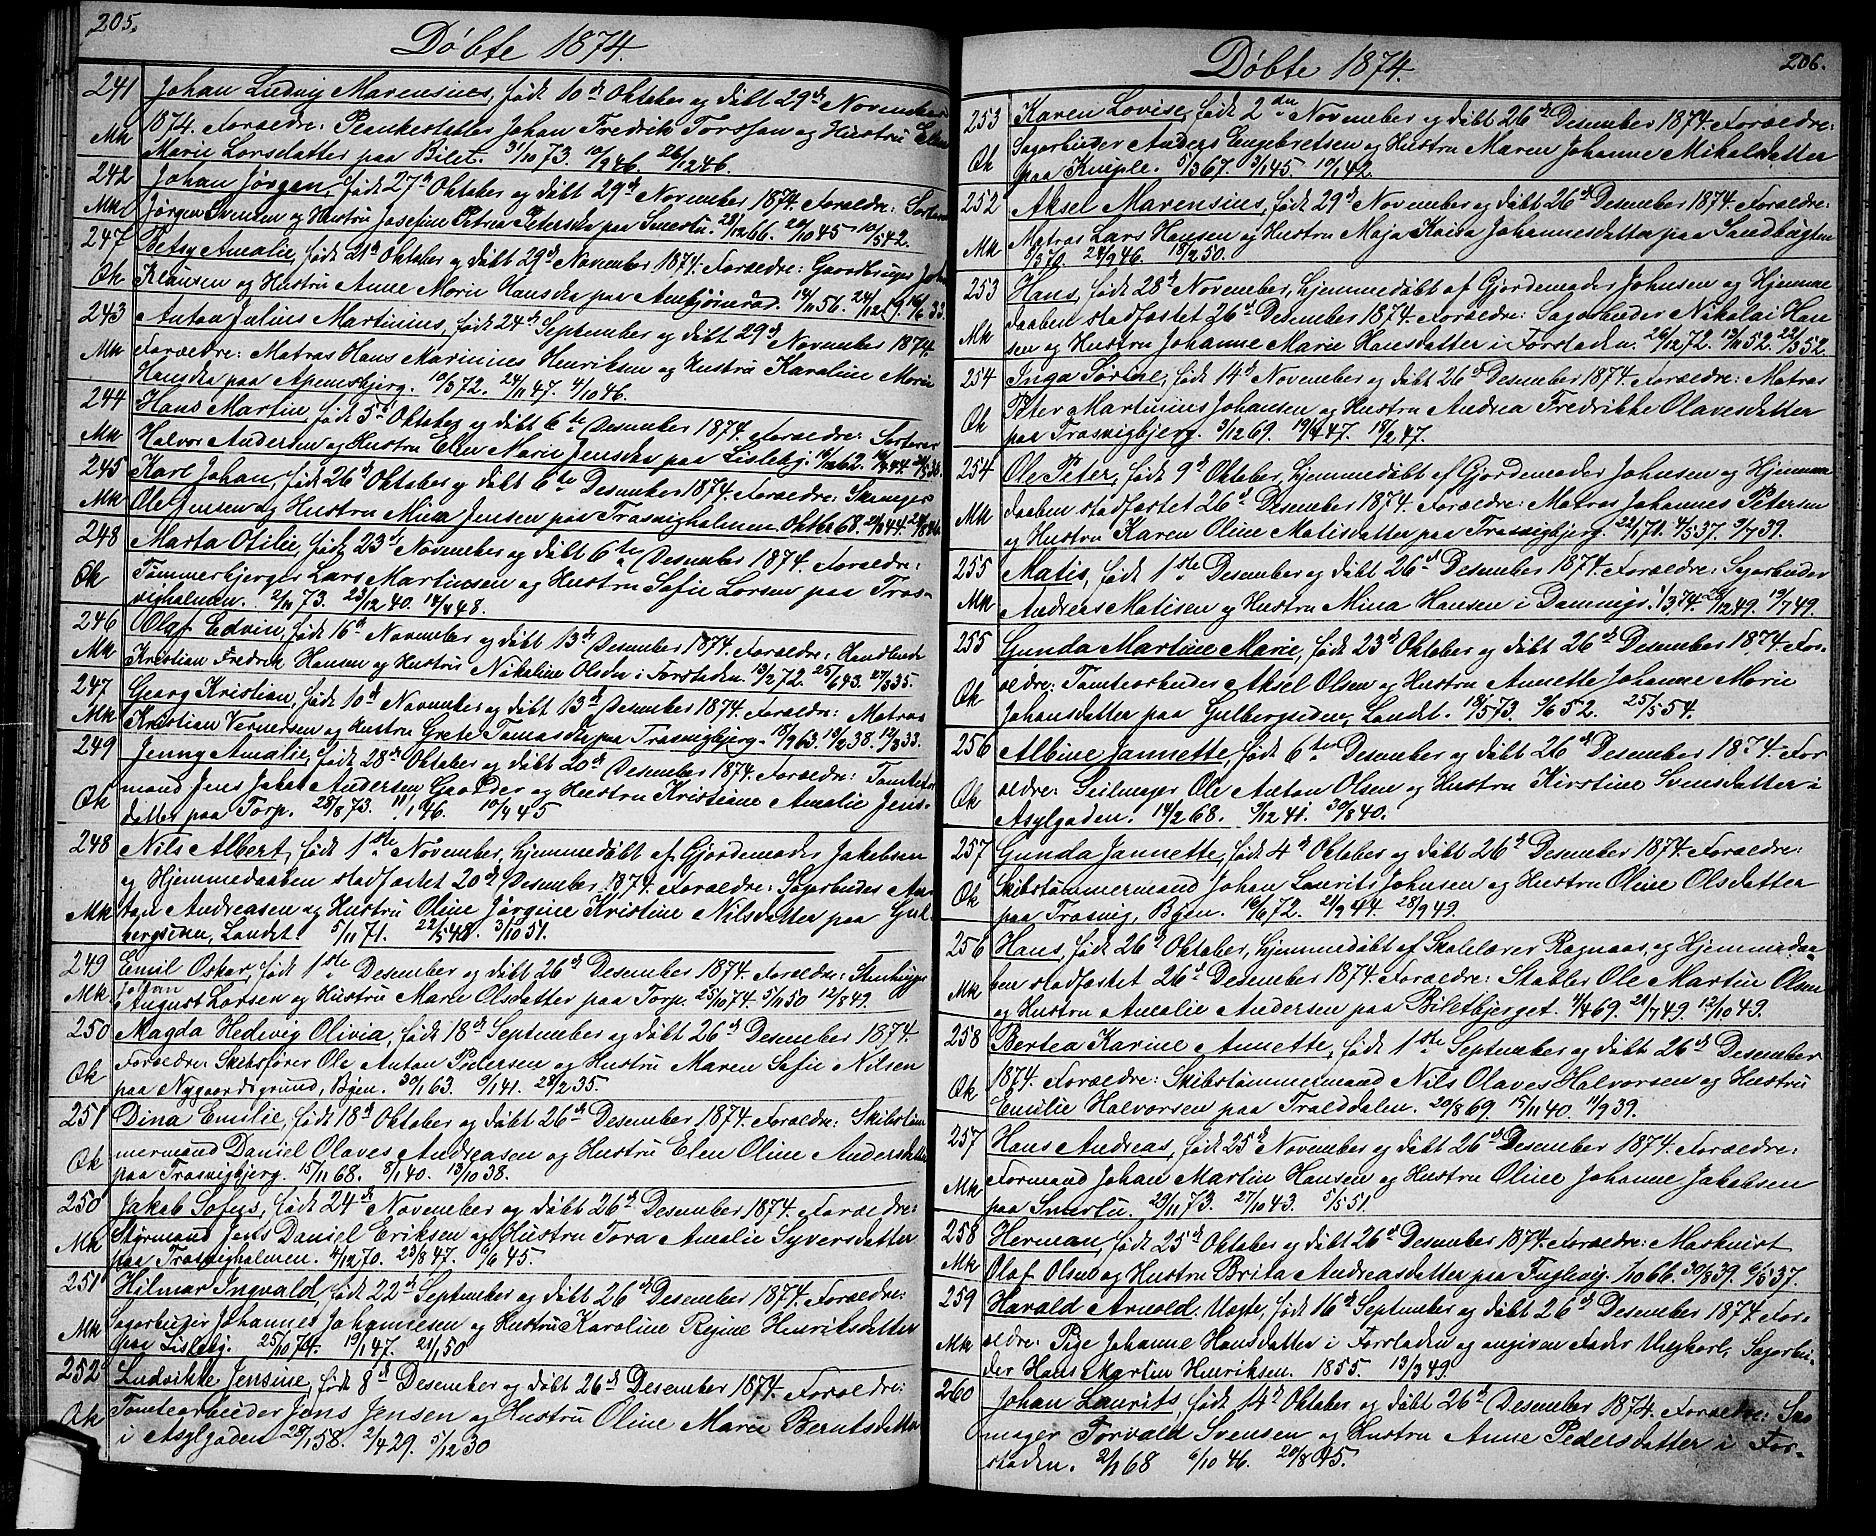 205.
Døbte 1874.
241 Johan Ludvig Marensius, født 10d Oktober og døbt 29d November
Mk 1874. Forældre: Plankestabler Johan Fredrik Torssen og Hustru Elen
Marie Larsdatter paa Bilet. 31/10 73. 10/9 46. 26/12 46.
242 Johan Jørgen, født 27d Oktober og døbt 29d November 1874. Forældre: Sorterer
Mk Jørgen Svensen og Hustru Josefine Petrea Petersda paa Smertu. 28/12 66. 20/10 45 10/5 42.
247 Betsy Amalie, født 21d Oktober og døbt 29d November 1874. Forældre: Gaardbruger Johan
Qk Klausen og Hustru Anne Marie Hansda paa Ambjørnrød. 14/11 56. 24/12 19. 16/6 33.
243 Anton Julius Martinius, født 24d September og døbt 29d November 1874.
Mk Forældre: Matros Hans Marinius Henriksen og Hustru Karoline Marie
Hansda paa Apenesbjerg. 10/3 72. 24/11 47. 4/10 46.
244 Hans Martin født 5d Oktober og døbt 6te Desember 1874. Forældre: Sorterer
Mk Halvor Andersen og Hustru Elen Marie Jensda paa Lisleby.
245 Karl Johan, født 26d Oktober og døbt 6te Desember 1874. Forældre: Skrueger
Mk Ole Jensen og Hustru Mina Jensen paa Trosvigholmen. Oktbr 68.
248 Marta Otilie, født 23d November og døbt 6te Desember 1874. Forældre:
Qk Tømmerbjerger Lars Martinsen og Hustru Sofie Larsen paa Tros-
vigholmen. 2/11 73. 23/12 40. 14/8 48.
246 Olaf Edvin, født 16d November og døbt 13de Desember 1874. Forældre: Handlende
Mk Kristian Fredrik Hansen og Hustru Nikoline Olsda i Forstaden. 13/2 72. 25/6 43. 27/3 35.
247 Georg Kristian, født 10d November og døbt 13d Desember 1874. Forældre: Matros
Mk Kristian Vernersen og Hustru Grete Tomasda paa Trosvigbjerg. 10/9 63. 10/2 38. 12/3 33.
249 Jenny Amalie, født 28d Oktober og døbt 20d Desember 1874. Forældre: Tømmer
Qk mand Jens Jakob Andersen Gaarder og Hustru Kristine Amalie Jens-
datter paa Torp. 28/8 73. 11/1 46. 10/4 45
248 Nils Albert, født 1ste November, hjemmedøbt af Gjordemoder Jakobsen
og Hjemmedaaben stadfæstet 20d Desember 1874. Forældre: Sagarbeider An-
Mk ton Andreasen og Hustru Oline Jørgine Kristine Nilsdatter paa Gul
bergsiden, Landet. 5/11 71. 22/5 48. 3/10 51.
249 Emil Oskar, født 1ste Desember og døbt 26d Desember 1874. Forældre: Stenhugger
Mk Johan August Larsen og Hustru Marie Olsdatter paa Torp. 25/10 74. 5/11 50 12/8 49.
250 Magda Hedevig Olivia, født 18d September og døbt 26d Desember 1874.
Qk Forældre: Skibsfører Ole Anton Pedersen og Hustru Maren Sofie Nilsen
paa Nygaardsgrund, Byen. 30/1 63. 9/1 41. 28/2 35.
251 Dina Emilie, født 18d Oktober og døbt 26d Desember 1874. Forældre: Skibstøm
Qk mermand Daniel Olaves Andreasen og Hustru Elen Oline Andersdatter
paa Trosvigbjerg. 15/11 68. 8/1 40. 13/10 38.
250 Jakob Sofus, født 24d November og døbt 26d Desember 1874. Forældre:
Mk Styrmand Jens Daniel Eriksen og Hustru Tora Amalie Syversdatter
paa Trosvigholmen. 4/12 70. 23/8 47. 6/6 45.
251 Hilmar Ingvald, født 22d September og døbt 26d Desember 1874. Forældre:
Mk Sagarbeider Johannes Johannesen og Hustru Karoline Regine Henriksdatter
paa Lisleby. 25/10 74. 19/1 47. 21/1 50
252 Ludvikke Jensine, født 8d Desember og døbt 26d Desember 1874. Forældre:
Qk Tomtearbeider Jens Jensen og Hustru Oline Marie Berntsdatter
i Asylgaden 28/1 58. 2/4 29. 5/12 30
206.
Døbte 1874.
253 Karen Lovise, født 2den November og døbt 26d Desember 1874. Forældre:
Qk Sagarbeider Anders Engebretsen og Hustru Maren Johanne Mikalsdatter
paa Kniple. 5/3 67. 9/1 45. 19/1 42.
252 Aksel Marensius, født 29d November og døbt 26d Desember 1874. Forældre:
Mk Matros Lars Hansen og Hustru Maja Kaisa Johannesdatter paa Sandbugten
8/3 70. 24/9 46. 18/2 50.
253 Hans, født 28d November, hjemmedøbt af Gjordemoder Johnsen og Hjemme
daaben stadfæstet 26d Desember 1874. Forældre: Sagarbeider Nikolai Han
Mk sen og Hustru Johanne Marie Hansdatter i Forstaden. 26/12 72. 13/11 52. 22/3 52.
254 Inga Sørine, født 14d November og døbt 26d Desember 1874. Forældre: Matros
Qk Peter Martinius Johansen og Hustru Andrea Fredrikke Olavesdatter
paa Trosvigbjerg. 3/12 69. 19/4 47. 18/2 47.
254 Ole Peter, født 9d Oktober, hjemmedøbt af Gjordemoder Johnsen og Hjemme
Mk daaben stadfæstet 26d Desember 1874. Forældre: Matros Johannes Petersen
og Hustru Karen Oline Matisdatter paa Trosvigbjerg. 22/1 71. 4/5 37. 9/7 39.
255 Matis, født 1ste Desember og døbt 26d Desember 1874. Forældre: Sagarbeider
Mk Andreas Matisen og Hustru Mina Hansen i Damvigs. 1/3 74. 29/12 49. 19/7 49.
255 Gunda Martine Marie, født 23d Oktober og døbt 26d Desember 1874. For-
Qk ældre: Tomtearbeider Aksel Olsen og Hustru Annette Johanne Marie
Johansdatter paa Gulbergsiden, Landet. 18/5 73. 9/6 52. 25/5 54.
256 Albine Jannette, født 6te Desember og døbt 26d Desember 1874. For-
Qk ældre: Seilmager Ole Anton Olsen og Hustru Kirstine Svensdatter i
Asylgaden. 14/2 68. 9/12 41. 30/8 40.
257 Gunda Jannette, født 4d Oktober og døbt 26d Desember 1874. Forældre:
Qk Skibstømmermand Johan Laurits Johnsen og Hustru Oline Olsdatter
paa Trosvig, Byen. 16/6 72. 21/9 44. 28/9 49.
256 Hans, født 26d Oktober, hjemmedøbt af Skolelærer Ragnaas, og Hjemmedaa-
ben stadfæstet 26d Desember 1874. Forældre: Stabler Ole Martin Olsen
Mk og Hustru Amalie Andersen paa Biletbjerget. 4/4 69. 21/7 49. 12/10 49.
258 Bertea Karine Annette, født 1ste September og døbt 26d Desember
Qk 1874. Forældre: Skibstømmermand Nils Olaves Halvorsen og Hustru
Emilie Halvorsen paa Tralddalen. 20/8 69. 15/11 40. 11/9 39.
257 Hans Andreas, født 25d November og døbt 26d Desember 1874. Forældre:
Mk Formand Johan Martin Hansen og Hustru Oline Johanne Jakobsen
paa Smertu. 29/11 73. 27/10 43. 5/5 51.
258 Herman, født 25d Oktober og døbt 26d Desember 1874. Forældre: Maskinist
Mk Olaf Olsen og Hustru Brita Andreasdatter paa Fuglevig. 1/10 66. 30/8 39. 6/5 37.
259 Harald Arnold. Uægte, født 16d September og døbt 26d Desember 1874. For-
Mk ældre: Pige Johanne Hansdatter i Forstaden og angiven Fader Ungkarl, Sagarbei-
der Hans Martin Henriksen. 1855. 13/3 49.
260 Johan Laurits, født 14d Oktober og døbt 26d Desember 1874. Forældre: Sko
mager Torvald Svensen og Hustru Anne Pedersdatter i For-
staden. 2/11 68 6/10 46. 20/8 45.